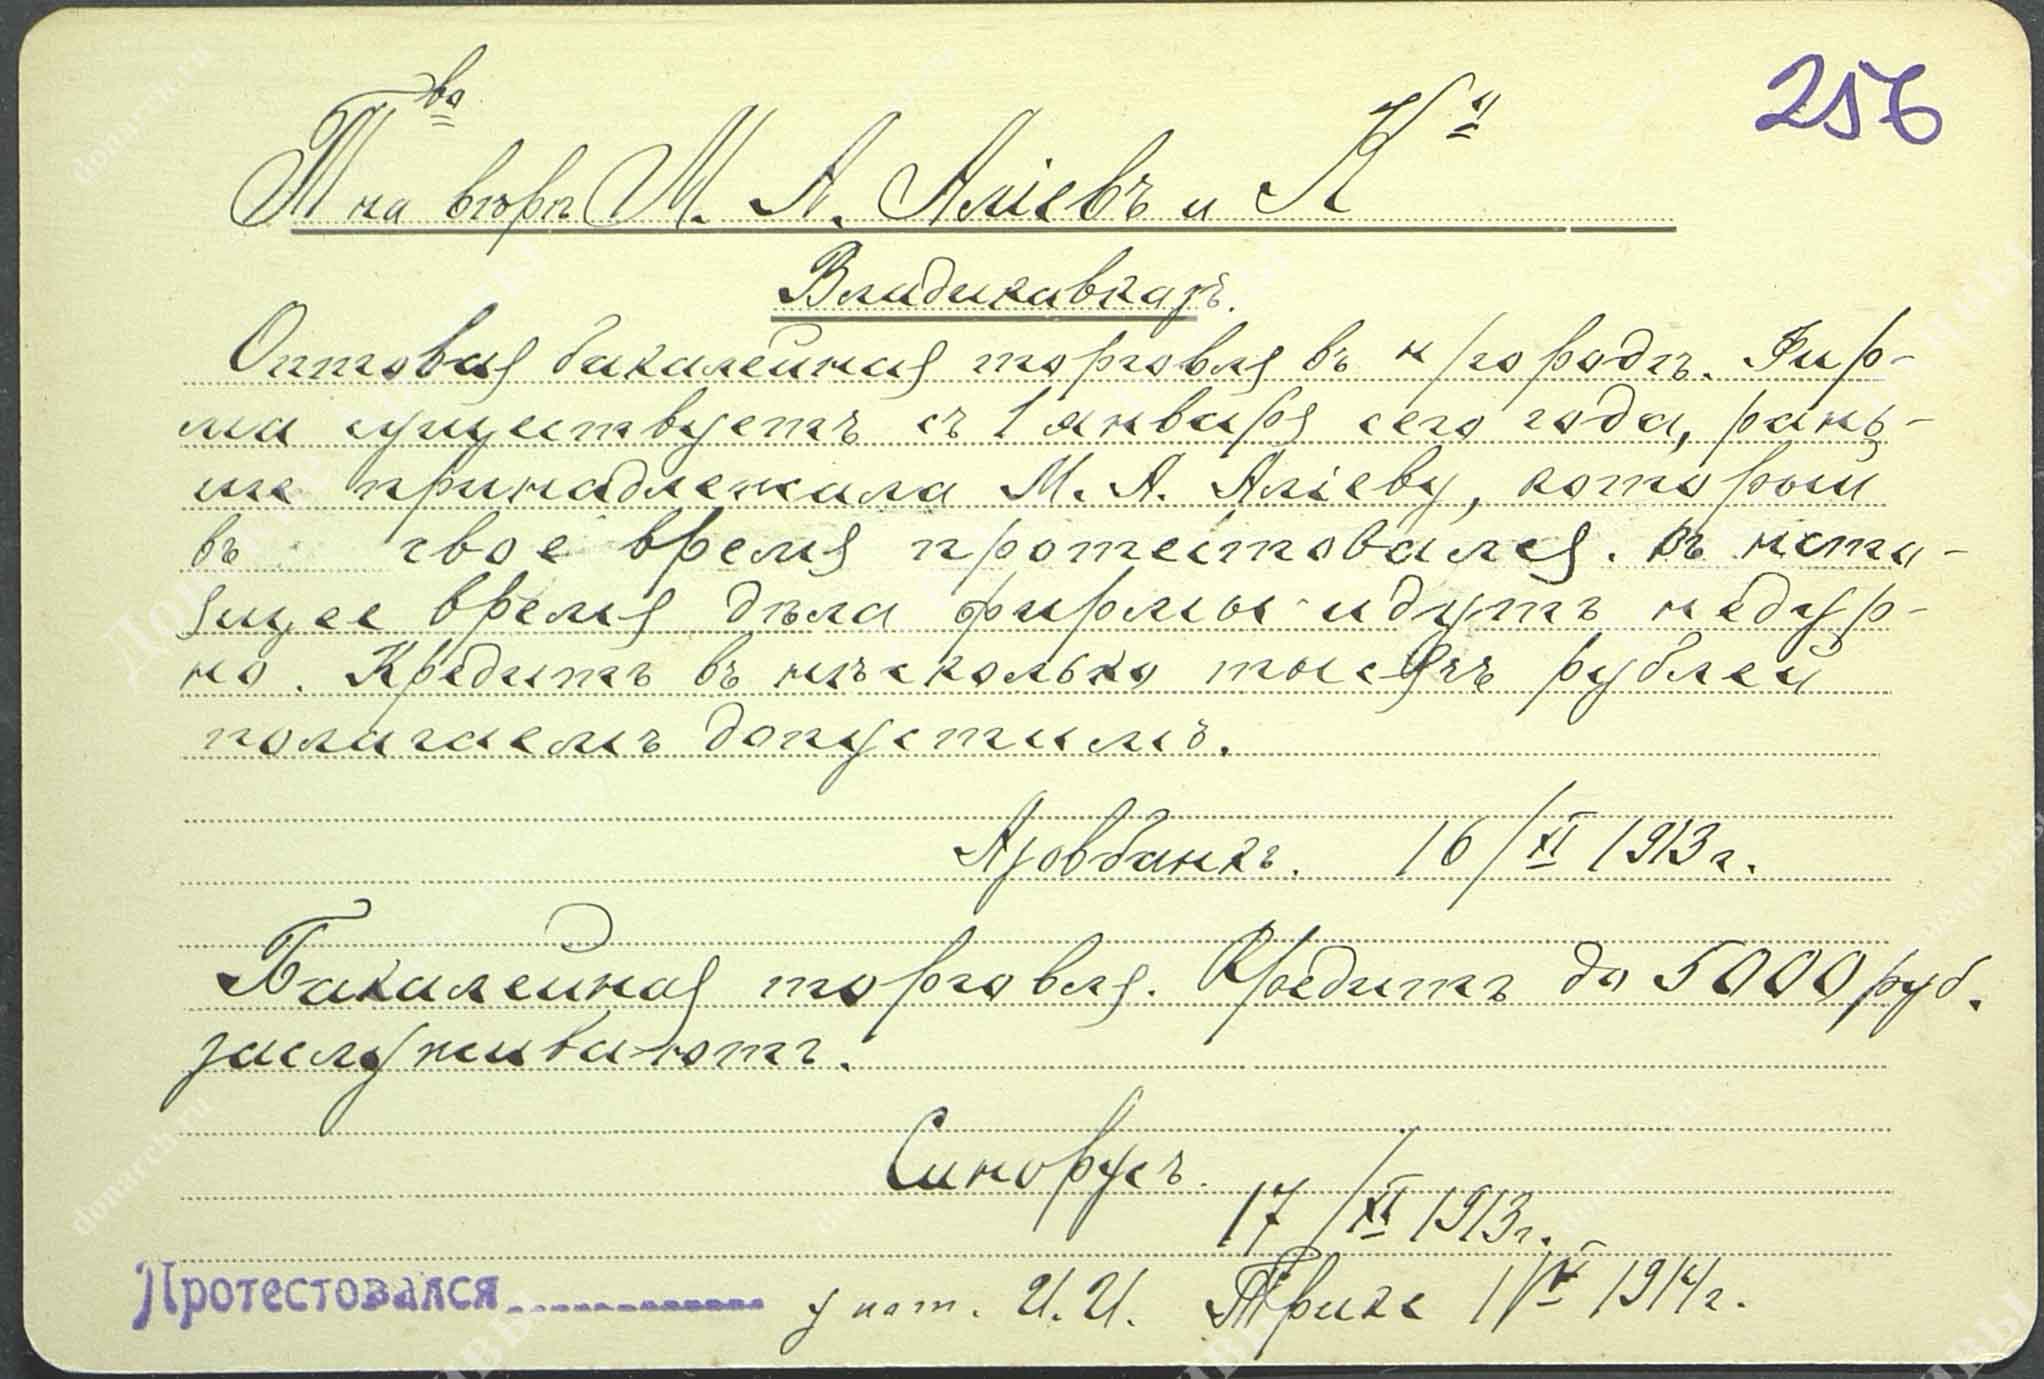 256
Т<sup>во</sup> на вѣрѣ М. А. Аліевъ и К<sup>о</sup>
Владикавказъ.
Оптовая бакалейная торговля въ н/городѣ. Фир-
ма существуетъ съ 1 января сего года, рань-
ше принадлежала М. А. Аліеву, который
въ свое время протестовался. Въ насто-
ящее время дѣла фирмы идутъ недур-
но. Кредитъ въ нѣсколько тысячъ рублей
полагаемъ допустимъ.
Азовбанкъ. 16/XI 1913 г.
Бакалейная торговля. Кредитъ до 5000 руб.
заслуживаютъ.
Синорусъ.
17/XI 1913 г.
Протестовался у нот. И. И.